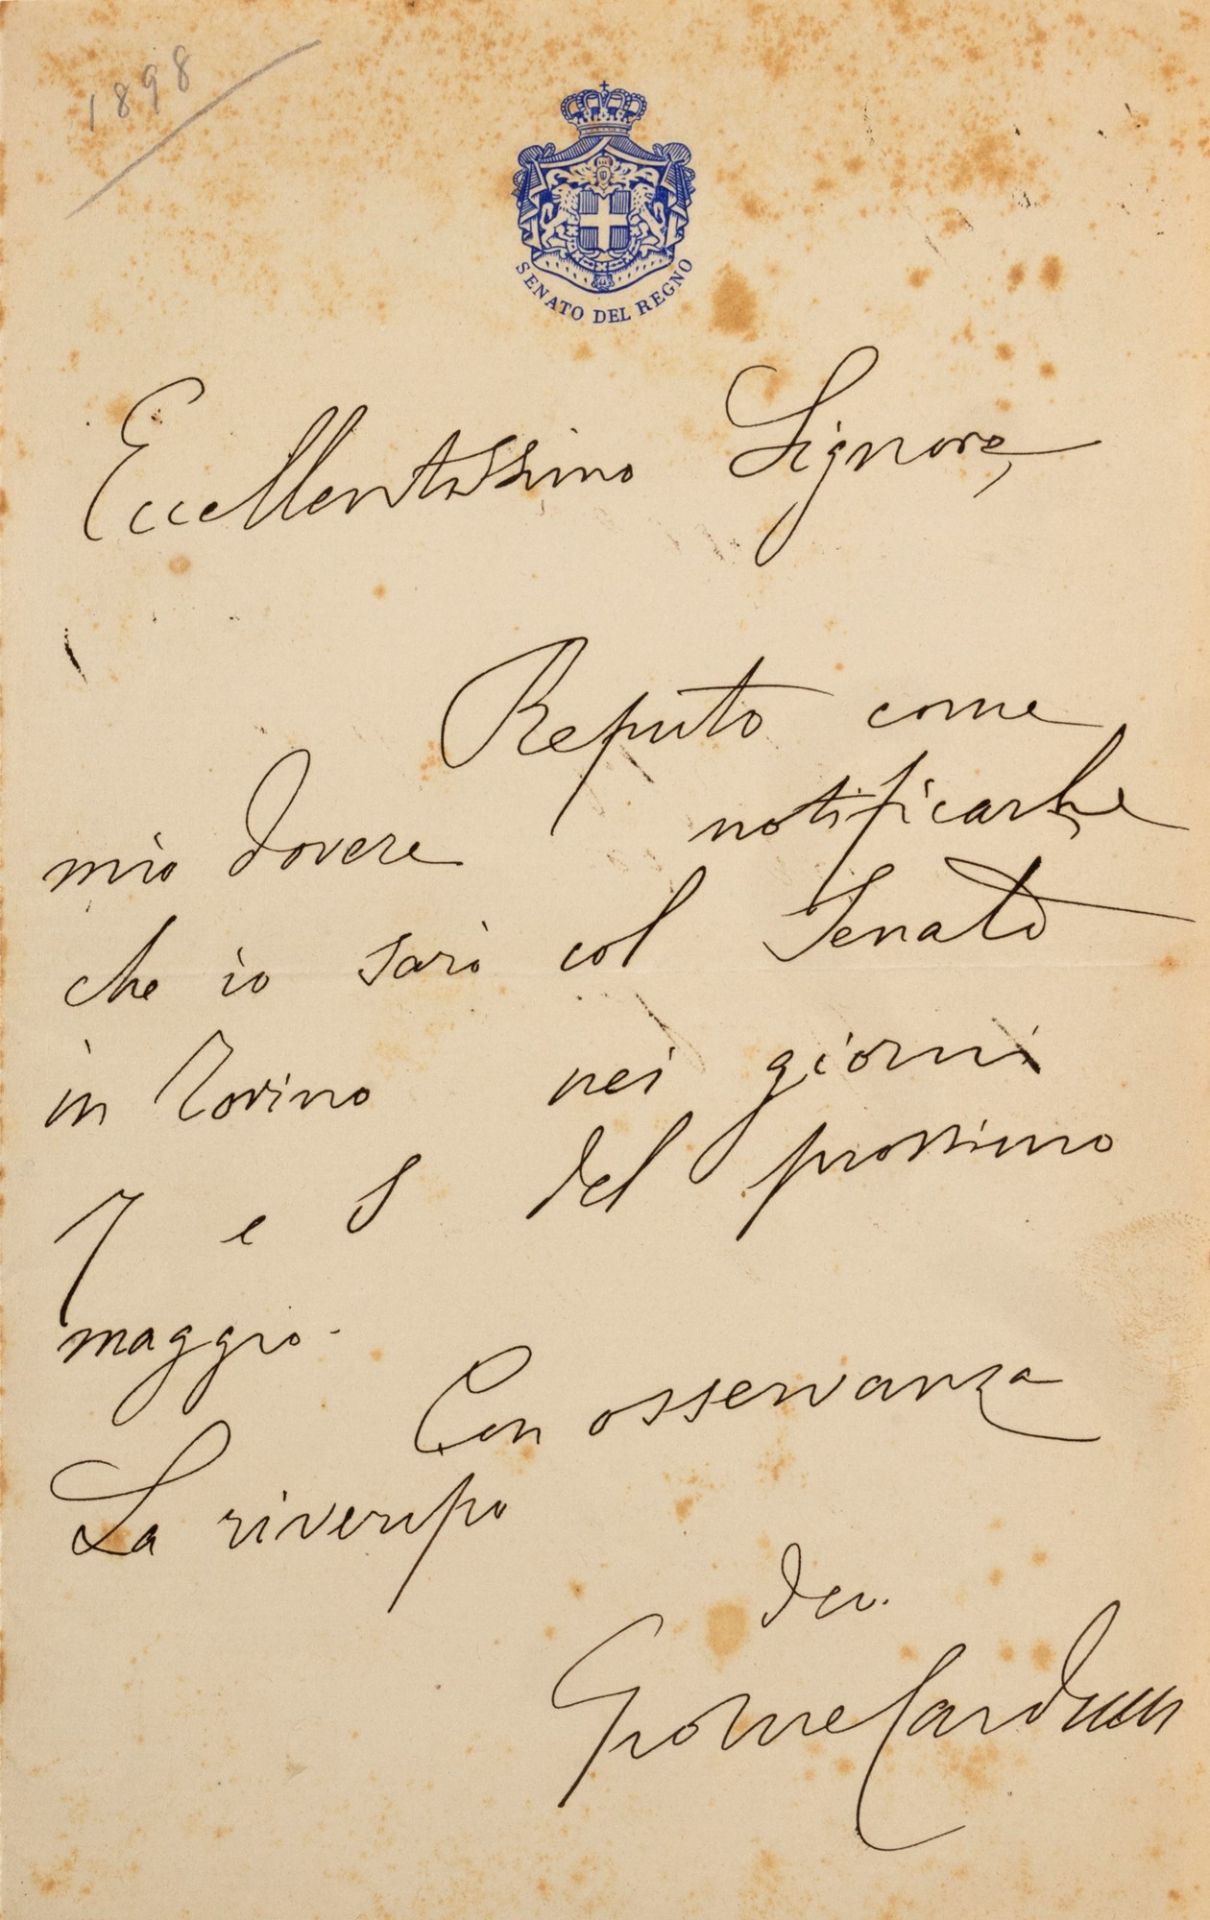 1898
SENATO DEL REGNO
Eccellentissimo Signore,
Reputo come
mio dovere notificarle
che io sarò col Senato
in Torino nei giorni
7 e 8 del prossimo
maggio.
Con osservanza
La riverisco
dev.
Giosue Carducci